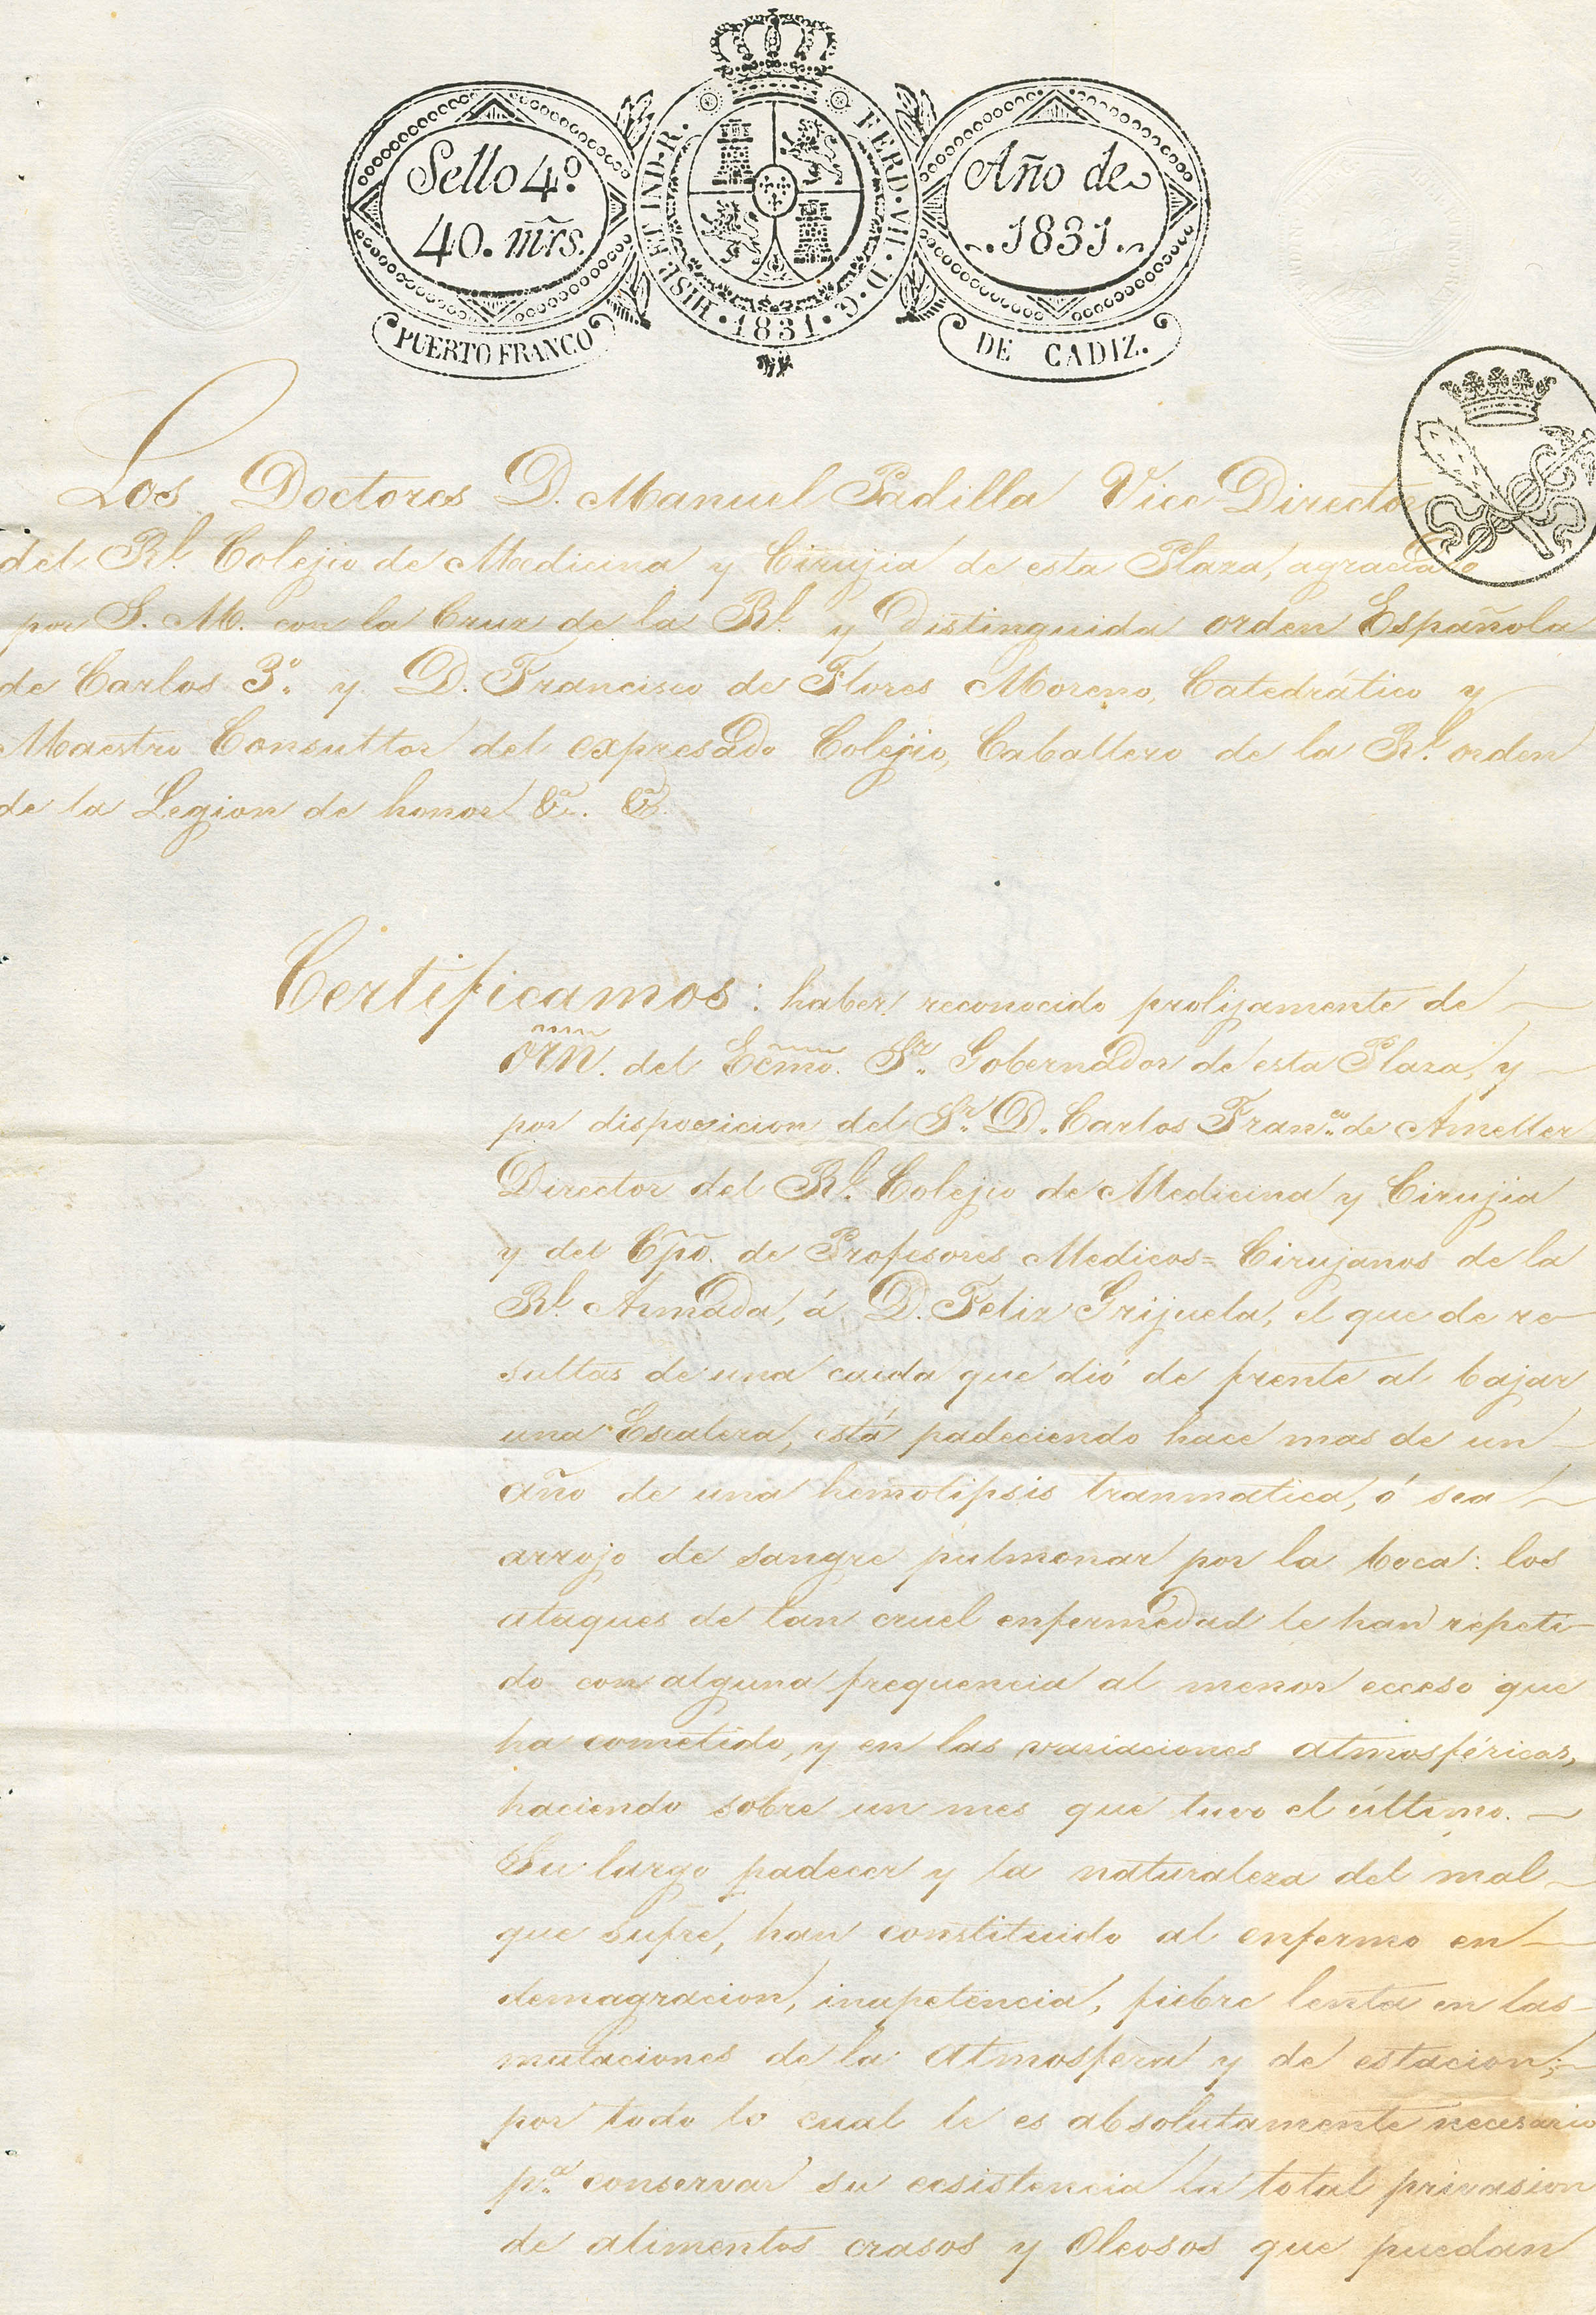 Sello 4.º
40. mrs.
PUERTO FRANCO
HISP. ET IND. R. FERD. VII. D. G. 1831
Año de
1831.
DE CADIZ.
Los Doctores D. Manuel Padilla Vice Director
del Rl. Colejio de Medicina y Cirujia de esta Plaza, agraciado
por S. M. con la Cruz de la Rl. y Distinguida orden Española
de Carlos 3º. y D. Francisco de Flores Moreno, Catedrático y
Maestro Consultor del expresado Colejio, Caballero de la Rl. orden
de la Legion de honor &. &.
Certificamos: haber reconocido prolijamente de
orñ. del Ecmõ. Sr. Gobernador de esta Plaza, y
por disposicion del Sr. D. Carlos Franco. de Ameller
Director del Rl. Colejio de Medicina y Cirujia
y del Cpõ. de Profesores Medicos=Cirujanos de la
Rl. Armada, á D. Feliz Grijuela, el que de re
sultas de una caida que dió de frente al bajar
una Escalera, está padeciendo hace mas de un
año de una hemotipsis tranmatica, ó sea
arrojo de sangre pulmonar por la boca: los
ataques de tan cruel enfermedad le han repeti-
do con alguna frequencia al menor ecceso que
ha cometido, y en las variaciones atmosféricas,
haciendo sobre un mes que tuvo el último.
Su largo padecer y la naturaleza del mal
que sufre, han constituido al enfermo en
demagracion, inapetencia, fiebre lenta en las
mutaciones de la atmosfera y de estacion;
por todo lo cual le es absolutamente necesario
pa. conservar su ecsistencia la total privasion
de alimentos crasos y oleosos que puedan